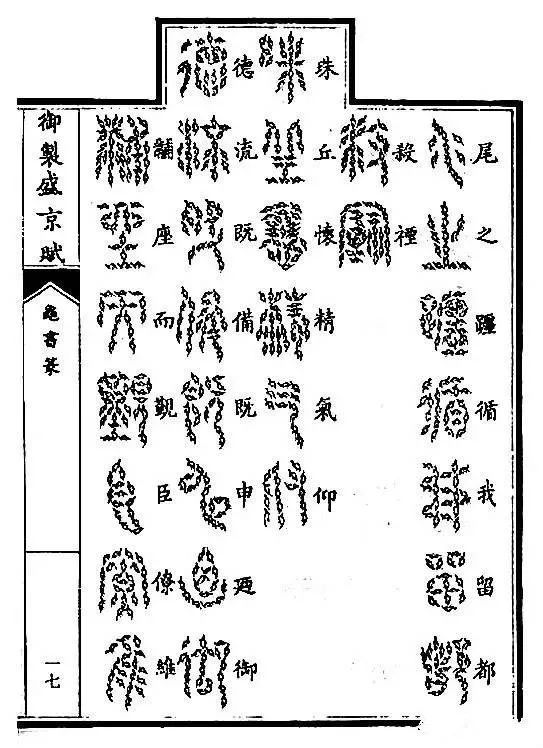 尾之躔循我留都
殺禋
珠丘懷精氣仰
德流既備既申廼御
黼座而覲臣僚維
御製盛京賦
龜書篆
一七